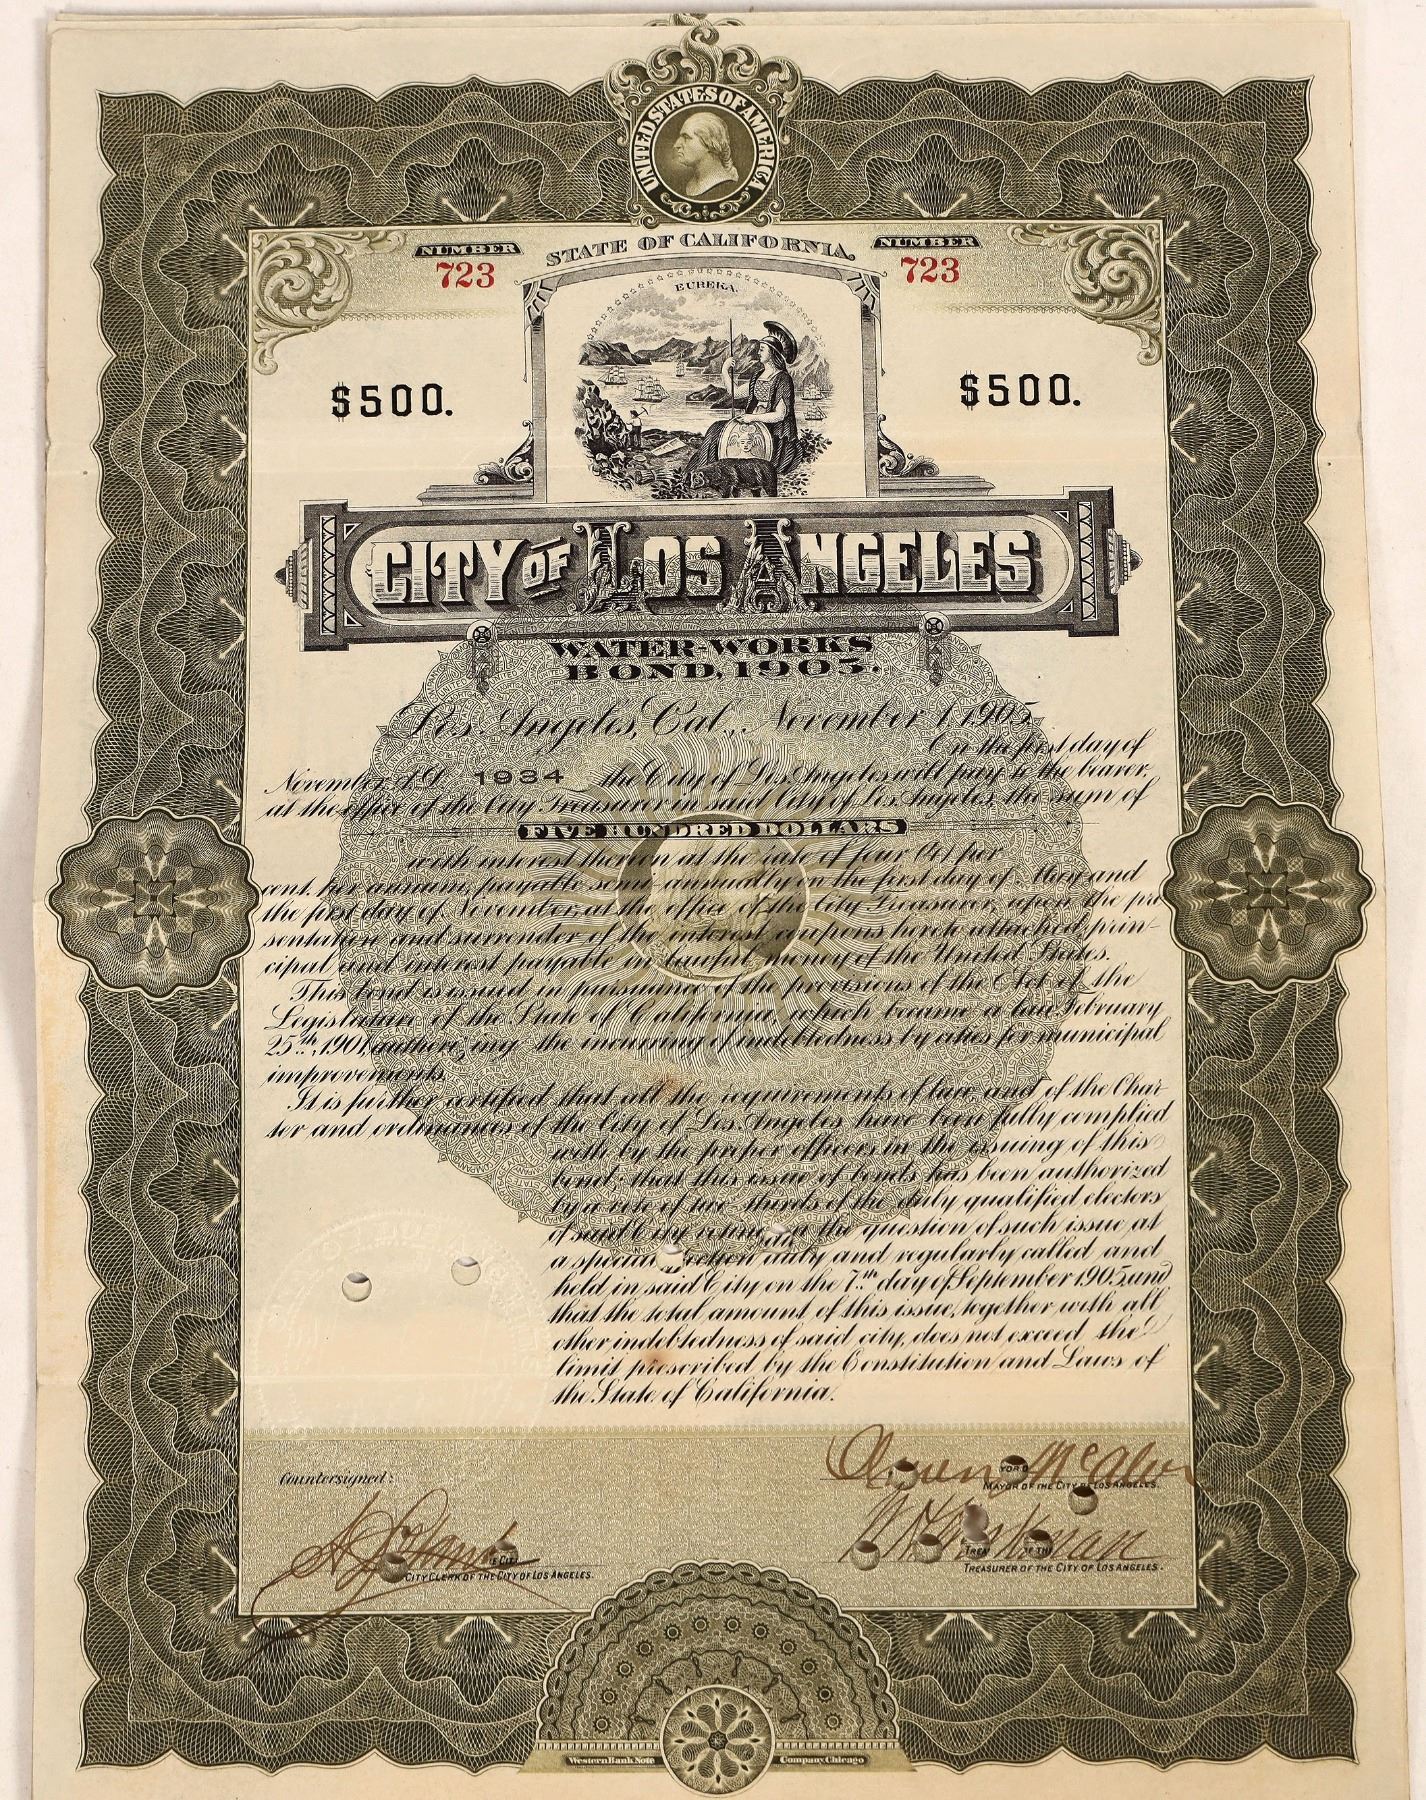 UNITED STATES OF AMERICA
STATE OF CALIFORNIA.
NUMBER
723
NUMBER
723
EUREKA.
$500.
$500.
CITY OF LOS ANGELES
WATER-WORKS
BOND, 1905.
Los Angeles, Cal., November 1, 1905.
On the first day of
November, A.D. 1934 the City of Los Angeles will pay to the bearer,
at the office of the City Treasurer in said City of Los Angeles, the sum of
FIVE HUNDRED DOLLARS
with interest thereon at the rate of four (4) per
cent. per annum, payable semi-annually on the first day of May and
the first day of November, at the office of the City Treasurer, upon the pre
sentation and surrender of the interest coupons hereto attached, prin-
cipal and interest payable in lawful money of the United States.
This bond is issued in pursuance of the provisions of the Act of the
Legislature of the State of California, which became a law February
25th, 1901, authorizing the incurring of indebtedness by cities for municipal
improvements.
It is further certified that all the requirements of law, and of the Char-
ter and ordinances of the City of Los Angeles have been fully complied
with by the proper officers in the issuing of this
bond; that this issue of bonds has been authorized
by a vote of two thirds of the duly qualified electors
of said City voting on the question of such issue, at
a special election duly and regularly called and
held in said City on the 7th day of September 1905, and
that the total amount of this issue, together with all
other indebtedness of said city, does not exceed the
limit prescribed by the Constitution and Laws of
the State of California.
Countersigned:
Owen McAleer
MAYOR OF THE CITY OF LOS ANGELES.
CITY CLERK OF THE CITY OF LOS ANGELES.
TREASURER OF THE CITY OF LOS ANGELES.
Western Bank Note Company, Chicago